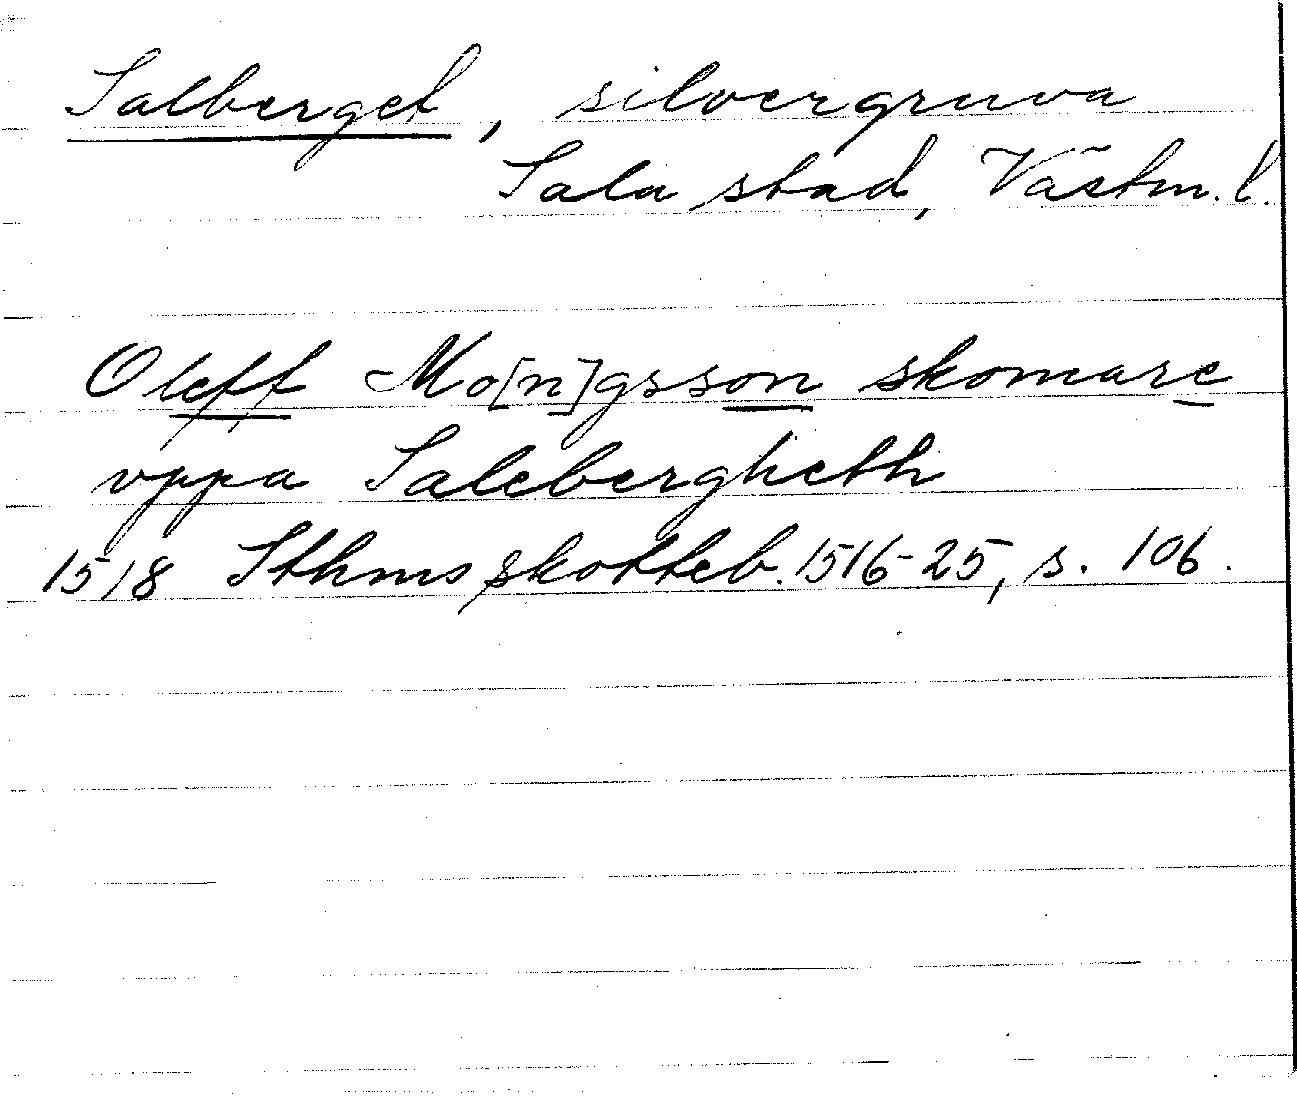 Salberget, silvergruva
Sala stad, Västm. l.
Oleff Mo[n]gsson skomare
vppa Salebergheth
1518 Sthms skotteb. 1516-25, s. 106.